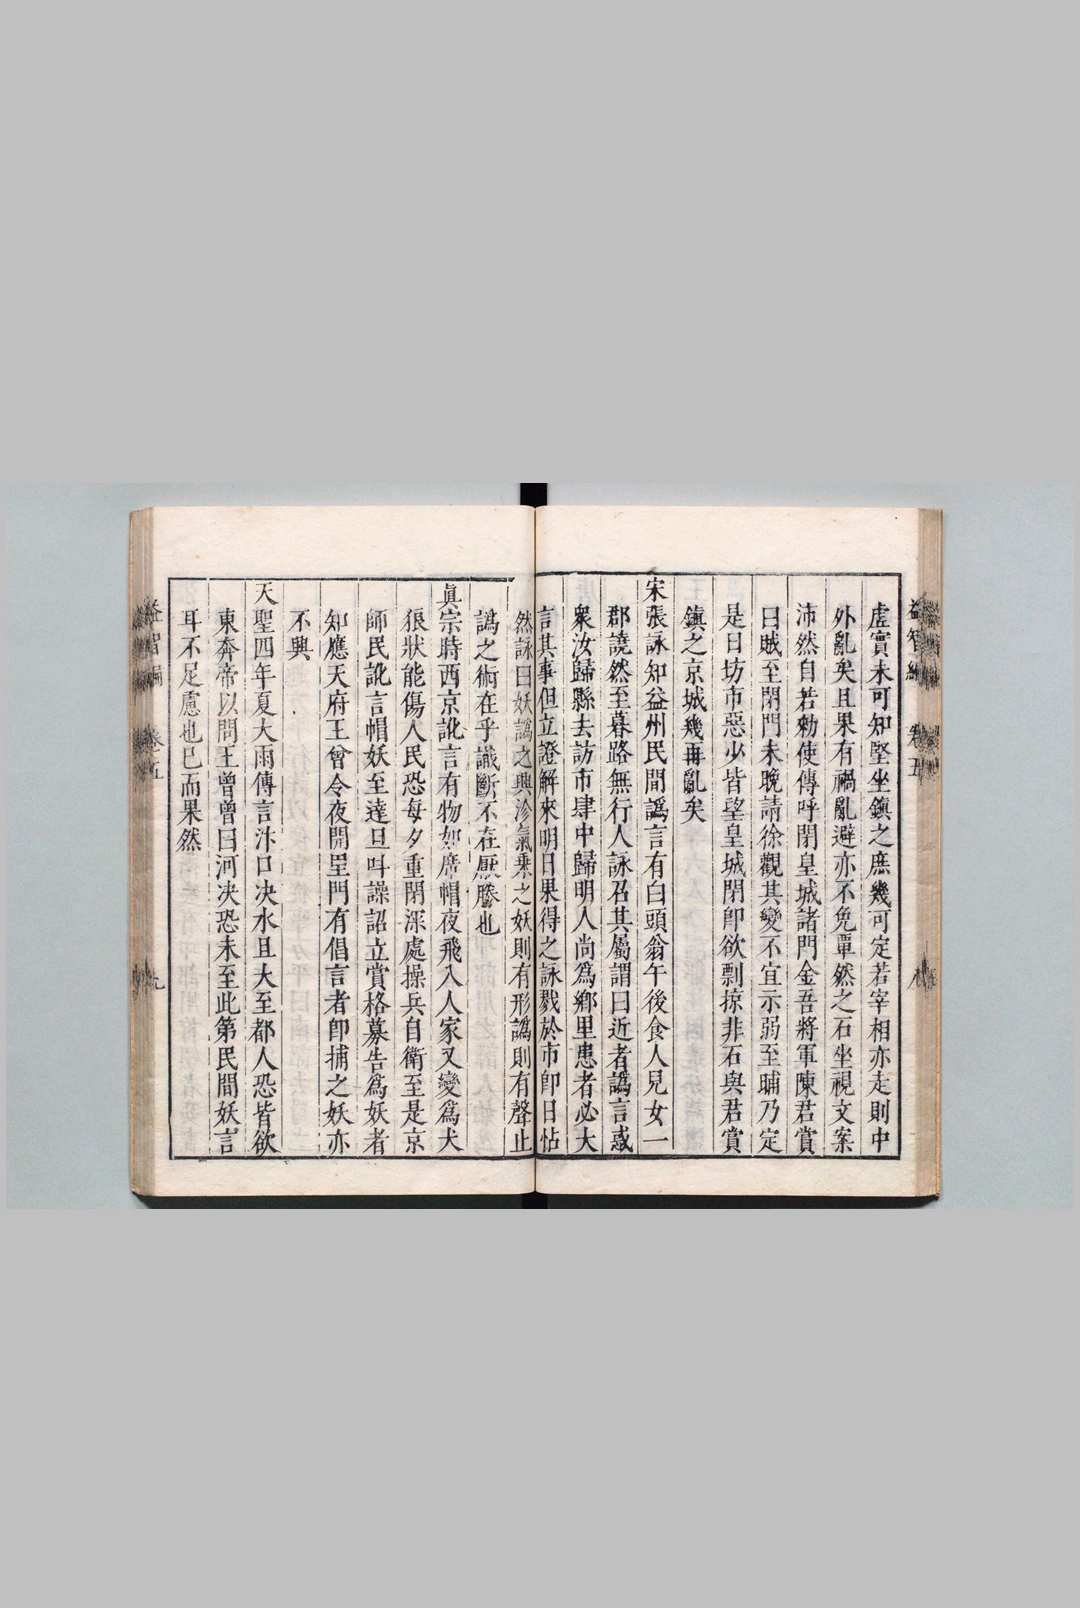 虛實未可知堅坐鎮之庶幾可定若宰相亦走則中
外亂矣且果有禍亂避亦不免覃然之石坐視文案
沛然自若勑使傳呼閉皇城諸門金吾將軍陳君賞
曰賊至閉門未晚請徐觀其變不宜示弱至晡乃定
是日坊市惡少皆望皇城閉卽欲剽掠非石與君賞
鎮之京城幾再亂矣
宋張詠知益州民間譌言有白頭翁午後食人兒女一
郡譊然至暮路無行人詠召其屬謂曰近者譌言惑
衆汝歸縣去訪市肆中歸明人尚爲鄕里患者必大
言其事但立證解來明日果得之詠戮於市卽日帖
然詠曰妖譌之興沴氣乗之妖則有形譌則有聲止
譌之術在乎識斷不在厭勝也
眞宗時西京訛言有物如席帽夜飛入人家又變爲犬
狼狀能傷人民恐每夕重閉深處操兵自衛至是京
師民訛言帽妖至達旦叫譟詔立賞格募告爲妖者
知應天府王曾令夜開里門有倡言者卽捕之妖亦
不興
天聖四年夏大雨傳言汴口决水且大至都人恐皆欲
東奔帝以問王曾曾曰河决恐未至此第民間妖言
耳不足慮也已而果然
益智編
卷五
九